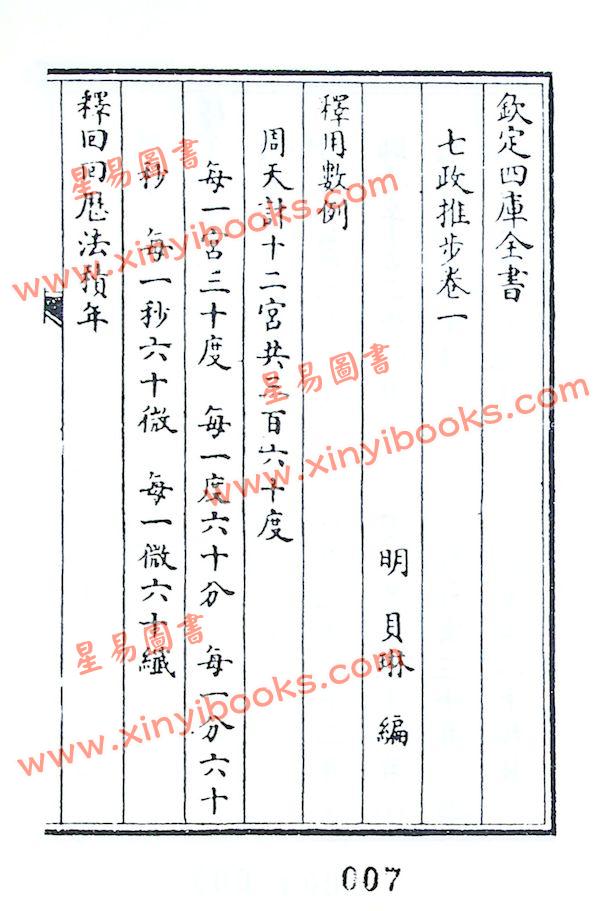 欽定四庫全書
七政推步卷一
明 貝琳 編
釋用數例
周天計十二宮共三百六十度
每一宮三十度 每一度六十分 每一分六十
秒 每一秒六十微 每一微六十纖
釋回回厯法積年
星易圖書
www.xinyibooks.com
星易圖書
www.xinyibooks.com
星易圖書
www.xinyibooks.com
007